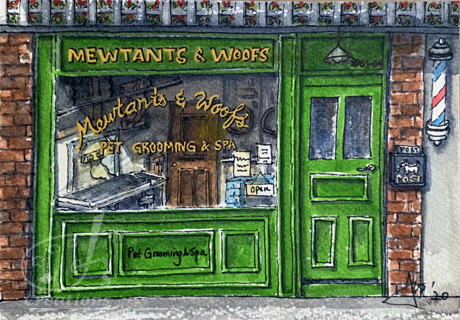 MEWTANTS & WOOFS
Mewtants & Woofs
PET GROOMING & SPA
Open
POST
POST
Pet Grooming & Spa
'20